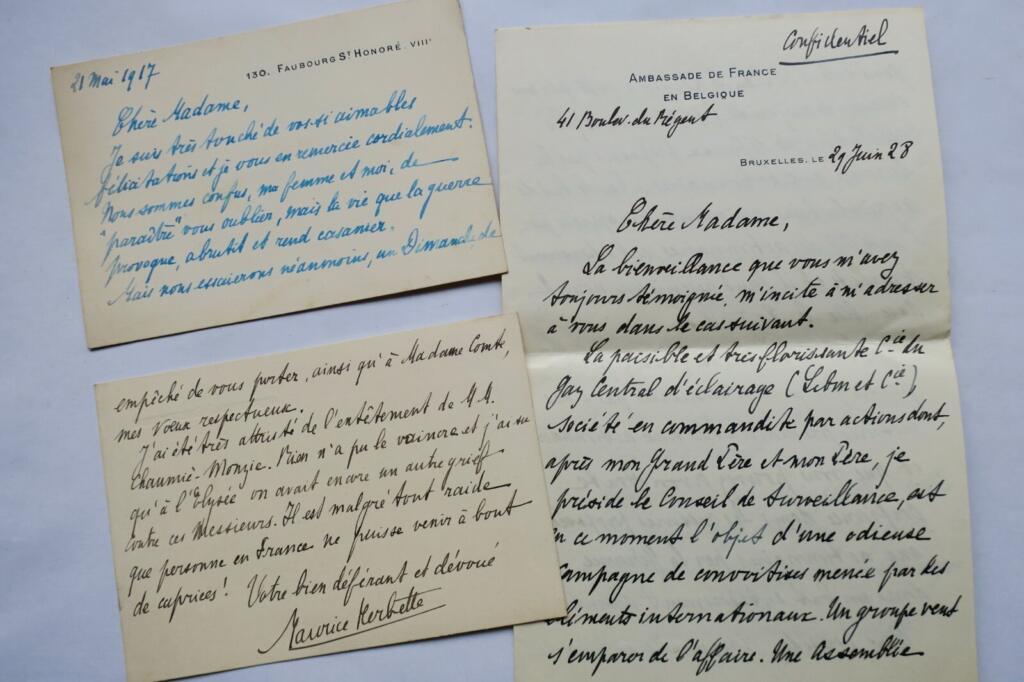 21 Mai 1917
130. FAUBOURG ST HONORÉ. VIIIᵉ
Chère Madame,
Je suis très touché de vos si aimables
félicitations et je vous en remercie cordialement.
Nous sommes confus, ma femme et moi, de
"paraître" vous oublier, mais la vie que la guerre
provoque, abrutit et rend casanier.
Mais nous essaierons néanmoins, un Dimanche, de
empêché de vous porter, ainsi qu'à Madame Comte,
mes vœux respectueux.
J'ai été très attristé de l'entêtement de M.M.
Chaumié-Monzie. Rien n'a pu le vaincre et j'ai su
qu'à l'Elysée on avait encore un autre grief
contre ces Messieurs. Il est malgré tout raide
que personne en France ne puisse venir à bout
de caprices! Votre bien déférant et dévoué
Maurice Herbette
Confidentiel
AMBASSADE DE FRANCE
EN BELGIQUE
41 Boulev. du Régent
BRUXELLES, LE 29 Juin 28
Chère Madame,
La bienveillance que vous m'avez
toujours témoignée, m'incite à m'adresser
à vous dans le cas suivant.
La paisible et très florissante Cie du
Gaz Central d'éclairage (Lebon et Cie)
société en commandite par actions dont,
après mon Grand Père et mon Père, je
préside le Conseil de Surveillance, est
en ce moment l'objet d'une odieuse
campagne de convoitises menée par des
éléments internationaux. Un groupe veut
s'emparer de l'affaire. Une Assemblée